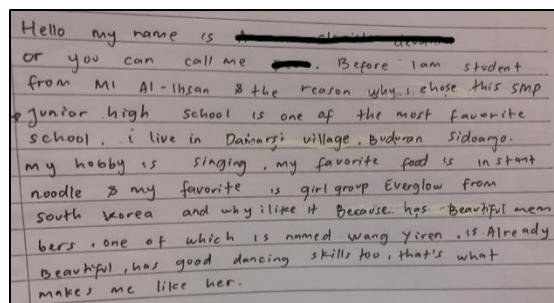 Hello my name is
or you can call me . Before I am student
from MI Al-Ihsan & the reason why i chose this SMP
junior high school is one of the most favorite
school. i live in Damarsi village. Buduran Sidoargo.
my hobby is singing, my favorite food is instant
noodle & my favorite is girl group Everglow from
south korea and why i like it Because has Beautiful mem
bers, one of which is named wang Yiren. is Already
Beautiful, has good dancing skills too, that's what
makes me like her.